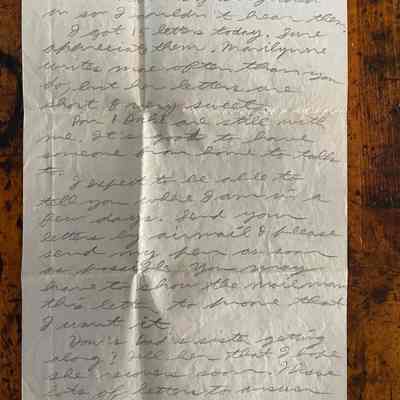 so I couldn't hear them.
I got 15 letters today. Sure
appreciate them. Marilynne
writes more often than you
do, but her letters are
short & very sweet.
Don & Dahl are still with
me. It's good to have
someone from home to talk
to.
I expect to be able to
tell you where I am in a
few days. Send your
letters by airmail & please
send my pen as soon
as possible. You may
have to show the mailman
this letter to prove that
I want it.
How's Dad's sister getting
along? Tell her that I hope
she recovers soon. I have
lots of letters to answer